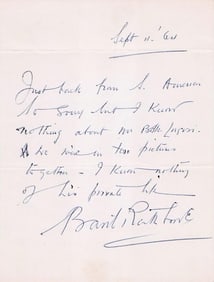 Sept 11. '64
Just back from S. America
So Sorry but I know
nothing about Mr Bela Lugosi.
We were in two pictures
together - I know nothing
of his private life
Basil Rathbone